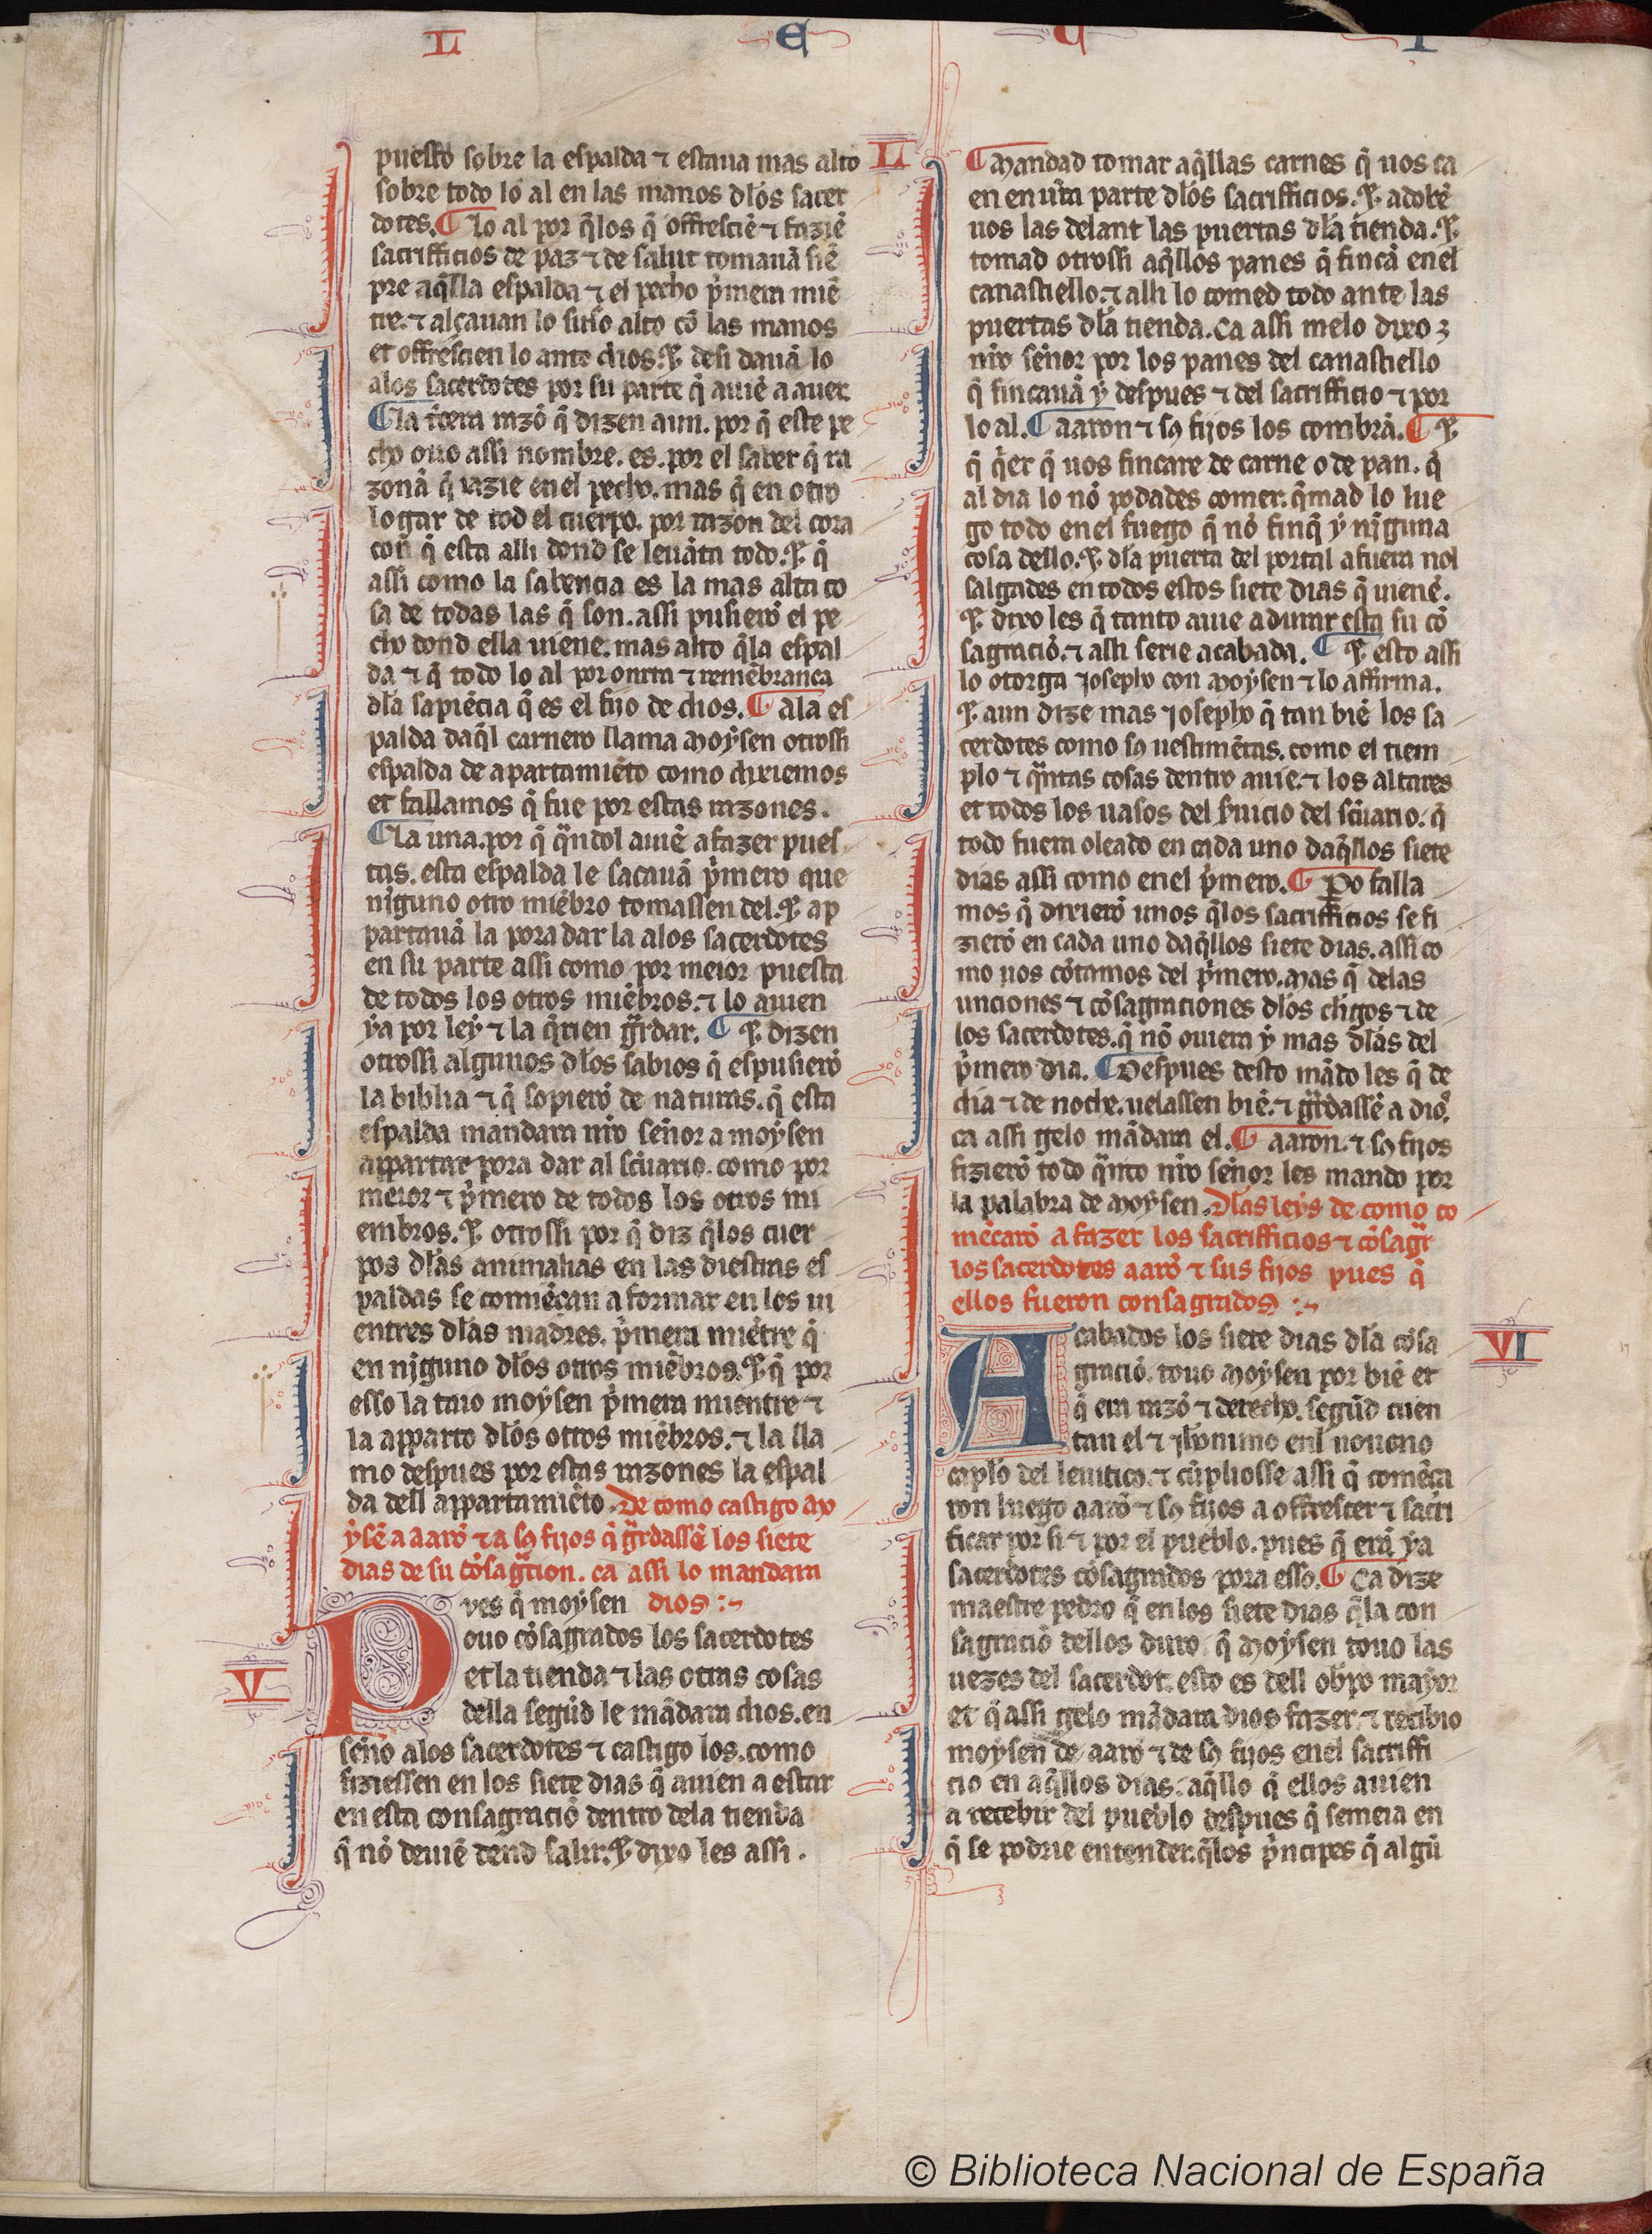 L E U I
puesto sobre la espalda ⁊ estaua mas alto
sobre todo lo al en las manos dlos sacer
dotes. ¶ lo al por q̃los q̃ offresciẽ ⁊ faziẽ
sacrifficios de paz ⁊ de salut tomauã siẽ
pre aq̃lla espalda ⁊ el pecho p̃mera miẽ
tre. ⁊ alçauan lo suso alto cõ las manos
et offrescien lo ante dios. ⁊ desi dauã lo
alos sacerdotes por su parte q̃ auiẽ a auer.
¶ la t̃cera razõ q̃ dizen aun. por q̃ este pe
cho ouo assi nombre. es. por el saber q̃ ra
zonã q̃ iazie enel pecho. mas q̃ en otro
logar de tod el cuerpo. por razon del cora
con q̃ esta alli dond se leuãta todo. ⁊ q̃
assi como la sabencia es la mas alta co
sa de todas las q̃ son. assi pusierõ el pe
cho dond ella uiene. mas alto q̃la espal
da ⁊ q̃ todo lo al por onrra ⁊ remẽbranca
dla sapiẽcia q̃ es el fijo de dios. ¶ ala es
palda daq̃l carnero llama moysen otrossi
espalda de apartamiẽto como dixiemos
et fallamos q̃ fue por estas razones.
¶ la una. por q̃ q̃ndol auiẽ a fazer pues
tas. esta espalda le sacauã p̃mero que
ninguno otro miẽbro tomassen del. ⁊ ap
partauã la pora dar la alos sacerdotes
en su parte assi como por meior puesta
de todos los otros miẽbros. ⁊ lo auien
ya por ley ⁊ la q̃rien g̃rdar. ¶ ⁊ dizen
otrossi algunos dlos sabios q̃ espusierõ
la biblia ⁊ q̃ sopierõ de naturas. q̃ esta
espalda mandara nr̃o señor a moysen
appartar pora dar al sc̃uario. como por
meior ⁊ p̃mero de todos los otros mi
embros. ⁊ otrossi por q̃ diz q̃los cuer
pos dlas animalias en las diestras es
paldas se comiẽcan a formar en los ui
entres dlas madres. p̃mera miẽtre q̃
en ninguno dlos otros miẽbros. ⁊ q̃ por
esso la tiro moysen p̃mera mientre ⁊
la apparto dlos otros miẽbros. ⁊ la lla
mo despues por estas razones la espal
da dell appartamiẽto. De como castigo mo
ysẽ a aarõ ⁊ a sꝯ fijos q̃ g̃rdassẽ los siete
dias de su cõsag̃cion. ca assi lo mandara
dios :~
V
Pues q̃ moysen
ouo cõsagrados los sacerdotes
et la tienda ⁊ las otras cosas
della segũd le mãdara dios. en
seño alos sacerdotes ⁊ castigo los. como
fiziessen en los siete dias q̃ auien a estar
en esta consagraciõ dentro dela tienda
q̃ nõ deuiẽ dend salir. ⁊ dixo les assi.
L
¶ Mandad tomar aq̃llas carnes q̃ uos ca
en en ur̃a parte dlos sacrifficios. ⁊ adobẽ
uos las delant las puertas dla tienda. ⁊
tomad otrossi aq̃llos panes q̃ fincã enel
canastiello. ⁊ alli lo comed todo ante las
puertas dla tienda. ca assi melo dixo
nr̃o señor por los panes del canastiello
q̃ fincauã y despues ⁊ del sacrifficio ⁊ por
lo al. ¶ aaron ⁊ sꝯ fijos los combrã. ¶ ⁊
q̃ q̃er q̃ uos fincare de carne o de pan. q̃
al dia lo nõ podades comer. q̃mad lo lue
go todo enel fuego q̃ nõ finq̃ y ninguna
cosa dello. ⁊ dla puerta del portal afuera nol
salgades en todos estos siete dias q̃ uienẽ.
⁊ dixo les q̃ tanto auie a durar esta su cõ
sagraciõ. ⁊ assi serie acabada. ¶ ⁊ esto assi
lo otorga Josepho con moysen ⁊ lo affirma.
⁊ aun dize mas Josepho q̃ tan biẽ los sa
cerdotes como sꝯ uestimẽtas. como el tiem
plo ⁊ q̃ntas cosas dentro auie. ⁊ los altares
et todos los uasos del s̃uicio del sc̃uario. q̃
todo fuera oleado en cada uno daq̃llos siete
dias assi como enel p̃mero. ¶ Pero falla
mos q̃ dixierõ unos q̃los sacrifficios se fi
zierõ en cada uno daq̃llos siete dias. assi co
mo uos cõtamos del p̃mero. Mas q̃ delas
unciones ⁊ cõsagraciones dlos cl̃igos ⁊ de
los sacerdotes. q̃ nõ ouiera y mas dlas del
p̃mero dia. ¶ Despues desto mãdo les q̃ de
dia ⁊ de noche. uelassen biẽ. ⁊ g̃rdassẽ a dios.
ca assi gelo mãdara el. ¶ aaron. ⁊ sꝯ fijos
fizierõ todo q̃nto nr̃o señor les mando por
la palabra de moysen. Dlas leys de como co
mẽcarõ a fazer los sacrifficios ⁊ cõsag̃r
los sacerdotes aarõ ⁊ sus fijos pues q̃
ellos fueron consagrados :~
VI
Acabados los siete dias dla cõsa
graciõ. touo moysen por biẽ et
q̃ era razõ ⁊ derecho. segũd cuen
tan el ⁊ Jheronimo enl noueno
capl̃o del leuitico. ⁊ cũpliosse assi q̃ comẽca
ron luego aarõ ⁊ sꝯ fijos a offrescer ⁊ sacri
ficar por si ⁊ por el pueblo. pues q̃ erã ya
sacerdotes cõsagrados pora esso. ¶ Ca dize
maestre pedro q̃ en los siete dias q̃la con
sagraciõ dellos duro. q̃ moysen touo las
uezes del sacerdot. esto es dell ob̃po mayor
et q̃ assi gelo mãdara dios fazer. ⁊ recibio
moysen de aarõ ⁊ de sꝯ fijos enel sacriffi
cio en aq̃llos dias. aq̃llo q̃ ellos auien
a recebir del pueblo despues q̃ semeia en
q̃ se podrie entender. q̃los p̃ncipes q̃ algũ
© Biblioteca Nacional de España